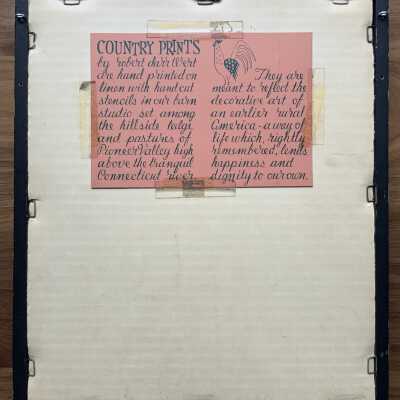 COUNTRY PRINTS
by robert darr wert
are hand printed on
linen with hand cut
stencils in our barn
studio set among
the hillside
and pastures of
Pioneer Valley high
above the tranquil
Connecticut river.
They are
meant to reflect the
decorative art of
an earlier rural
America - a way of
life which, rightly
remembered, lends
happiness and
dignity to our own.